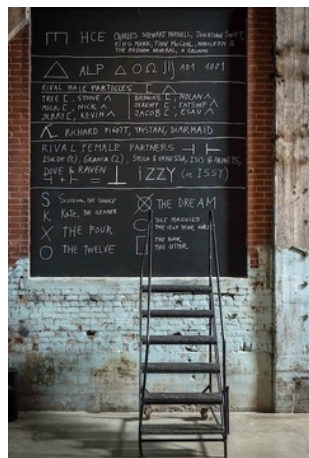 HCE CHARLES STEWART PARNELL, JONATHAN SWIFT,
KING MARK, FINN McCOOL, NAPOLEON &
THE RUSSIAN GENERAL, A SALMON
ALP △ O Ω 101 1001
RIVAL MALE PARTICLES [ Λ
TREE [, STONE Λ
MICK [, NICK Λ
JERRY [, KEVIN Λ
BROWNE [, NOLAN Λ
[, Λ
JACOB [, ESAU Λ
RICHARD PIGOTT, TRISTAN, DIARMAID
RIVAL FEMALE PARTNERS ⊣ ⊢
ISOLDE (2), GRANIA (2), STELLA & VANESSA, ISIS &
DOVE & RAVEN
⊣ + ⊢ = ⊥ IZZY (or ISSY)
S THE
K KATE, THE CLEANER
X THE FOUR
O THE TWELVE
THE DREAM
THE
THE BOOK,
THE LETTER